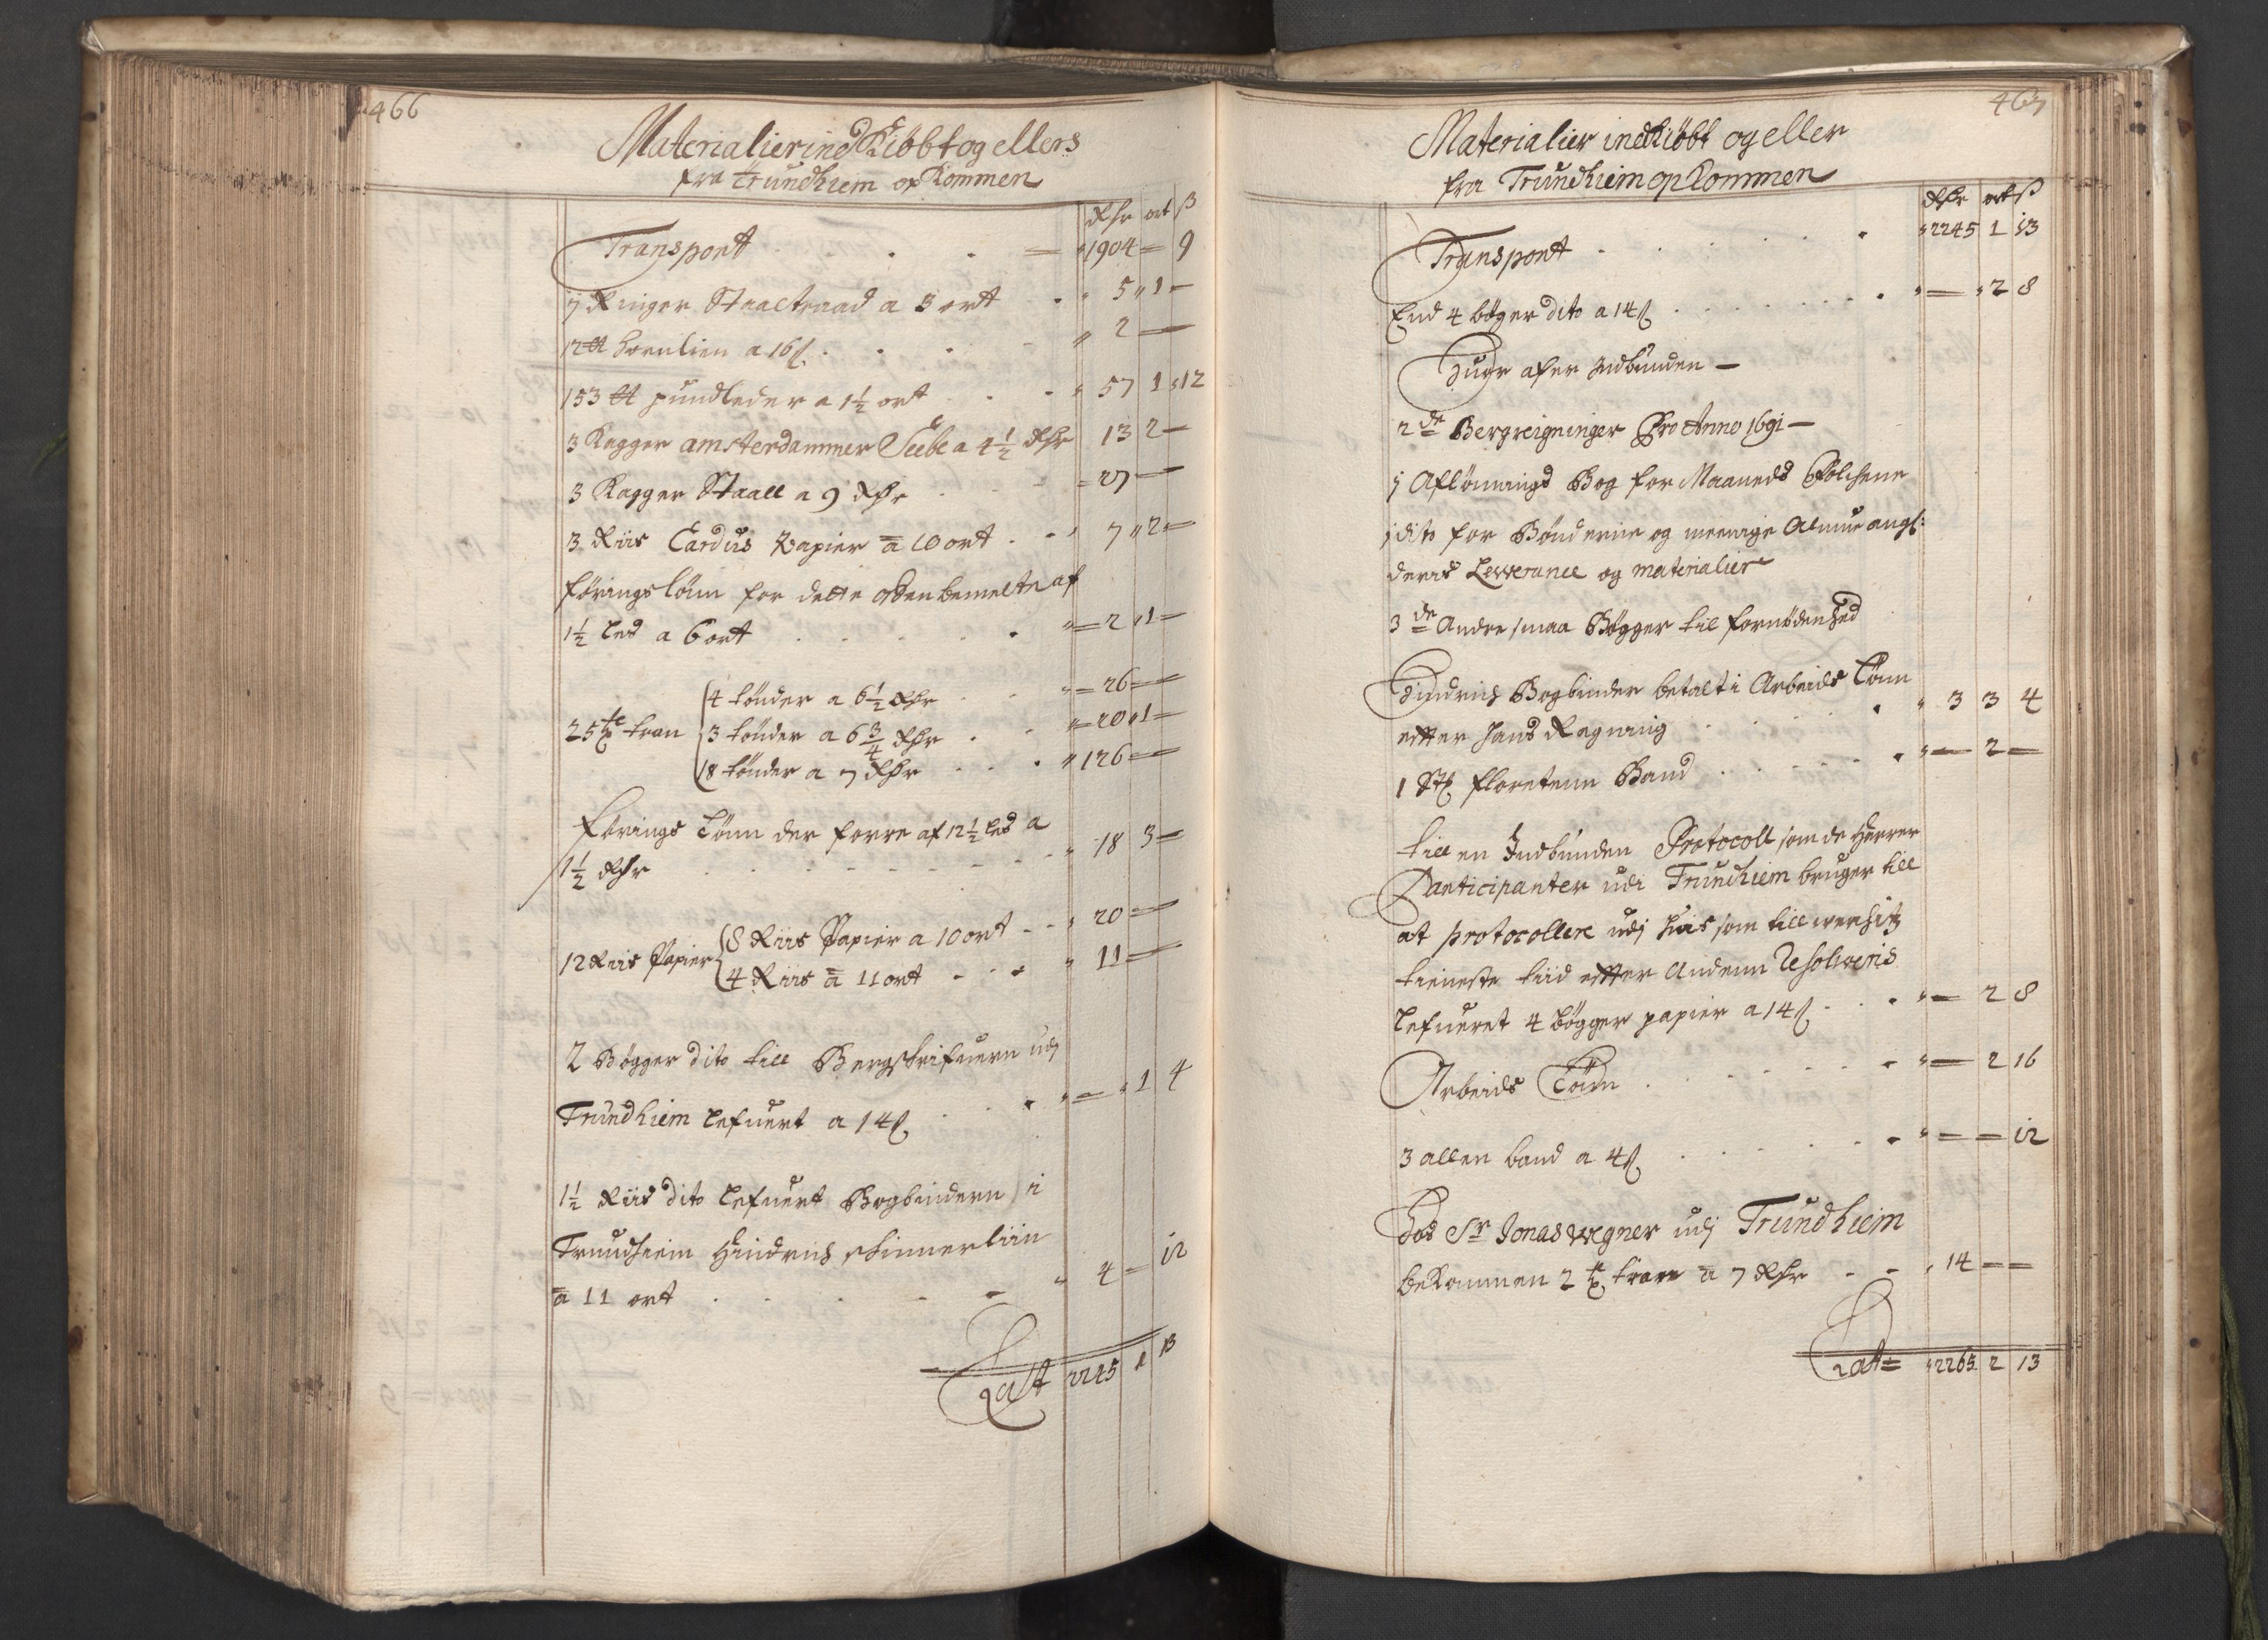 466
Materialier ind Kiöbt og ellers
fra Trundhiem op Kommen
Rdr ort ß
Transport 1904 — 9
7 Ringer Staaltraad a 3 ort 5 1 —
12 tt hornlien a 16 ß 2 —
153 tt pundleder a 1½ ort 57 1 12
3 Kagger amsterdammer Seebe a 4½ Rdr 13 2 —
3 Kagger Staall a 9 Rdr 27 —
3 Riis Cardus Papier a 10 ort 7 2 —
förings lönn for dette ofvenbemelte af
1½ les a 6 ort 2 1 —
4 tönder a 6½ Rdr 26 —
25 tr tran 3 tönder a 6¾ Rdr 20 1 —
18 tönder a 7 Rdr 126 —
förings Lönn der forre af 12½ les a
1½ Rdr 18 3 —
8 Riis Papier a 10 ort 20 —
12 Riis Papier
4 Riis a 11 ort 11 —
2 Bögger dito till Bergskrifuern udj
Trundhiem lefuert a 14 ß — 1 4
1½ Riis dito lefuert Bogbindern i
Trundhiem Hindrich
a 11 ort 4 — 12
Lat 2245 1 13
467
Materialier indkiöbt og eller
fra Trundhiem op Kommen
Rdr ort ß
Transport 2245 1 13
End 4 böger dito a 14 ß — 2 8
Huor afer indbunden —
2de Bergreigninger Pro Anno 1691 —
1 Aflönnings Bog for Maaneds Folchene
1 dito for Bönderne og meenige Almue angl:
deris Lewerance og materialier
3de Andre smaa Bögger til fornödenhed
Hindrich Bogbinder betalt i Arbeids Lönn
efter hans Regning 3 3 4
1 Stk floretenn Band — 2 —
till en Indbunden Protocoll som de Herrer
Participanter udi Trundhiem bruger till
at protocollere udj huis som till werchitz
tieneste tiid efter Andenn Resolveris
lefueret 4 bögger papier a 14 ß — 2 8
Arbeids Lönn — 2 16
3 allen band a 4 ß — — 12
Hos Sr Jonas Wegner udj Trundhiem
bekommen 2 tr tran a 7 Rdr 14 — —
Lat 2265 2 13